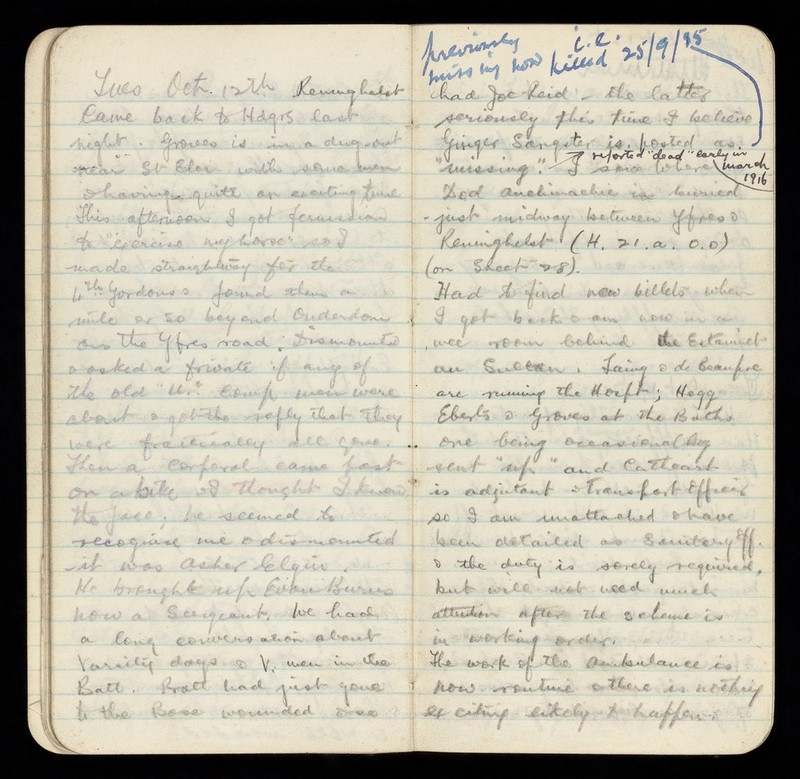 Tues Oct. 12th Reninghelst
Came back to Hdqrs last
night. Groves is in a dug-out
near St Eloi with some men
& having quite an exciting time
This afternoon I got permission
to "exercise my horse" so I
made straightway for the
4th Gordons & found them a
mile or so beyond Ouderdom
on the Ypres road. Dismounted
& asked a private if any of
the old "U." Comp. men were
about & got the reply that they
were practically all gone.
Then a corporal came past
on a bike & I thought I knew
the face; he seemed to
recognise me & dismounted
- it was Asher Elgin.
He brought up Evan Burns
now a Sergeant. We had
a long conversation about
Varsity days & V. men in the
Batt. Pratt had just gone
to the Base wounded & so
previously i.e.
missing now killed 25/9/15
had Joe Reid - the latter
seriously this time I believe
Ginger Sangster is posted as
"missing". I saw where
reported "dead" early in
March
1916
Dod Auchinachie is buried
- just midway between Ypres &
Reninghelst (H. 21. a. 0.0)
(on Sheet 28).
Had to find new billets when
I got back & am now in a
wee room behind the Estaminet
au Sultan. Laing & de Beaupre
are running the Hospt; Hegg
Eberts & Groves at the Baths
one being occasionally
sent "up" and Cathcart
is adjutant & Transport Officer
so I am unattached & have
been detailed as Sanitary Off.
& the duty is sorely required,
but will not need much
attention after the scheme is
in working order.
The work of the Ambulance is
now routine & there is nothing
exciting likely to happen.